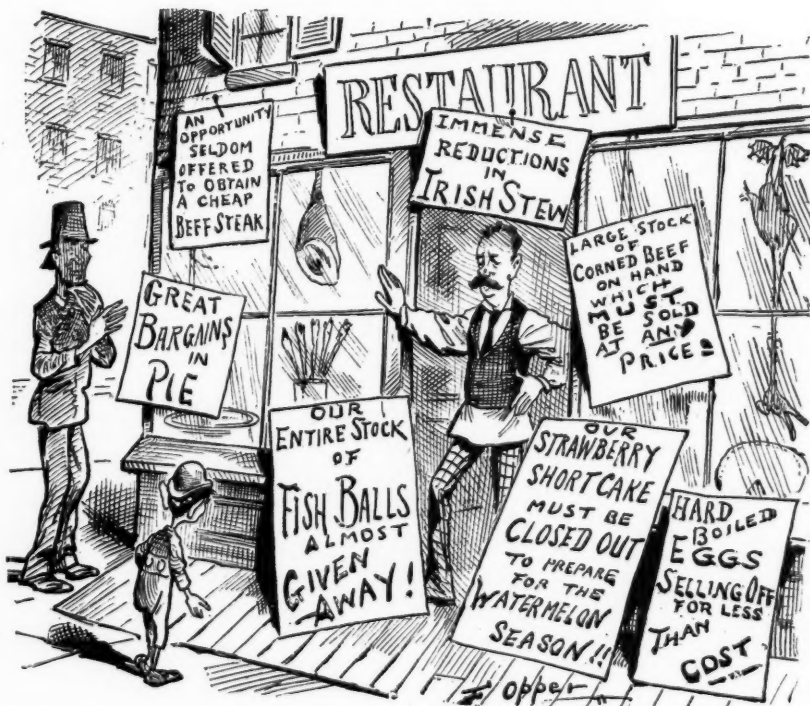 RESTAURANT
AN
OPPORTUNITY
SELDOM
OFFERED
TO OBTAIN
A CHEAP
BEEF STEAK
IMMENSE
REDUCTIONS
IN
IRISH STEW
LARGE STOCK
OF
CORNED BEEF
ON HAND
WHICH
MUST
BE SOLD
AT ANY
PRICE!
GREAT
BARGAINS
IN
PIE
OUR
ENTIRE STOCK
OF
FISH BALLS
ALMOST
GIVEN
AWAY!
OUR
STRAWBERRY
SHORTCAKE
MUST BE
CLOSED OUT
TO PREPARE
FOR THE
WATERMELON
SEASON!!
HARD
BOILED
EGGS
SELLING OFF
FOR LESS
THAN
COST
F Opper